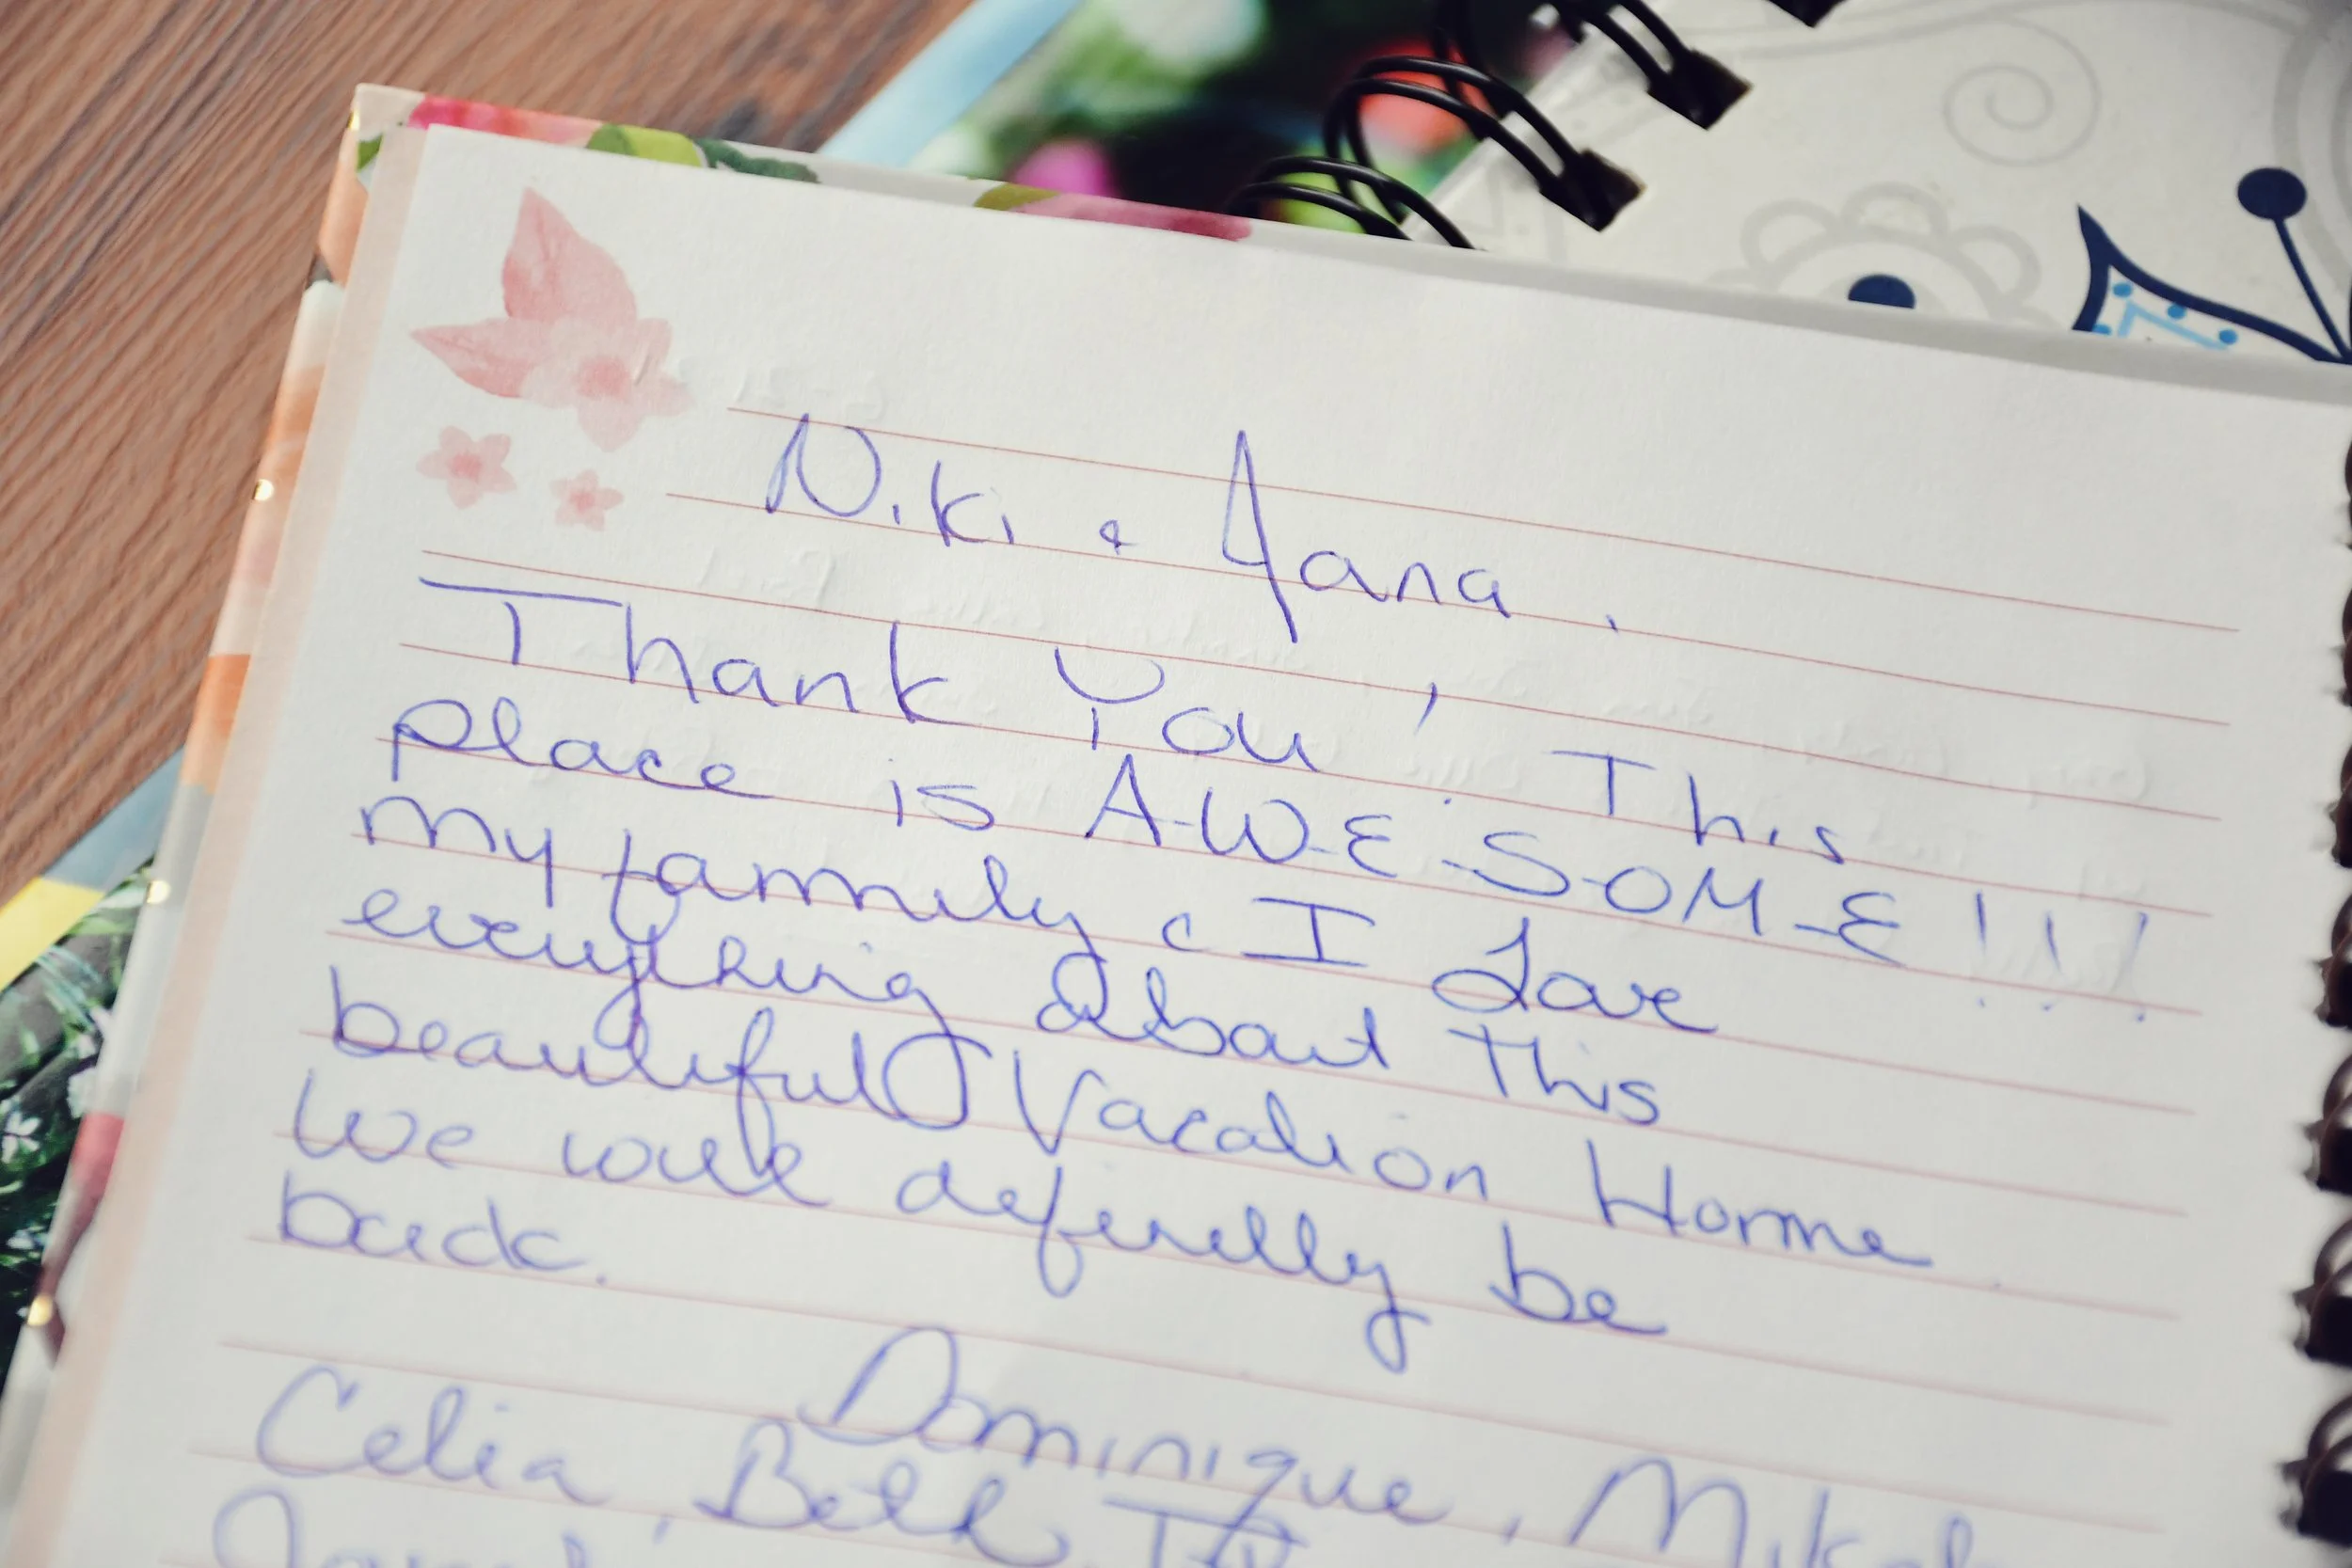 Niki & Jana,
Thank You, This
place is A-W-E-S-O-M-E!!!
My family & I Love
everything About this
beautiful Vacation Home
We will definelly be
back.
Dominique,
Celia, Beth,